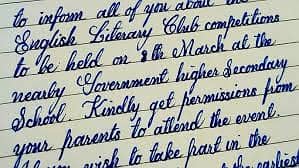 to inform all of you about the
English Literary Club competitions
to be held on 8th March at the
nearby Government higher Secondary
School. Kindly get permissions from
your parents to attend the event.
wish to take part in the